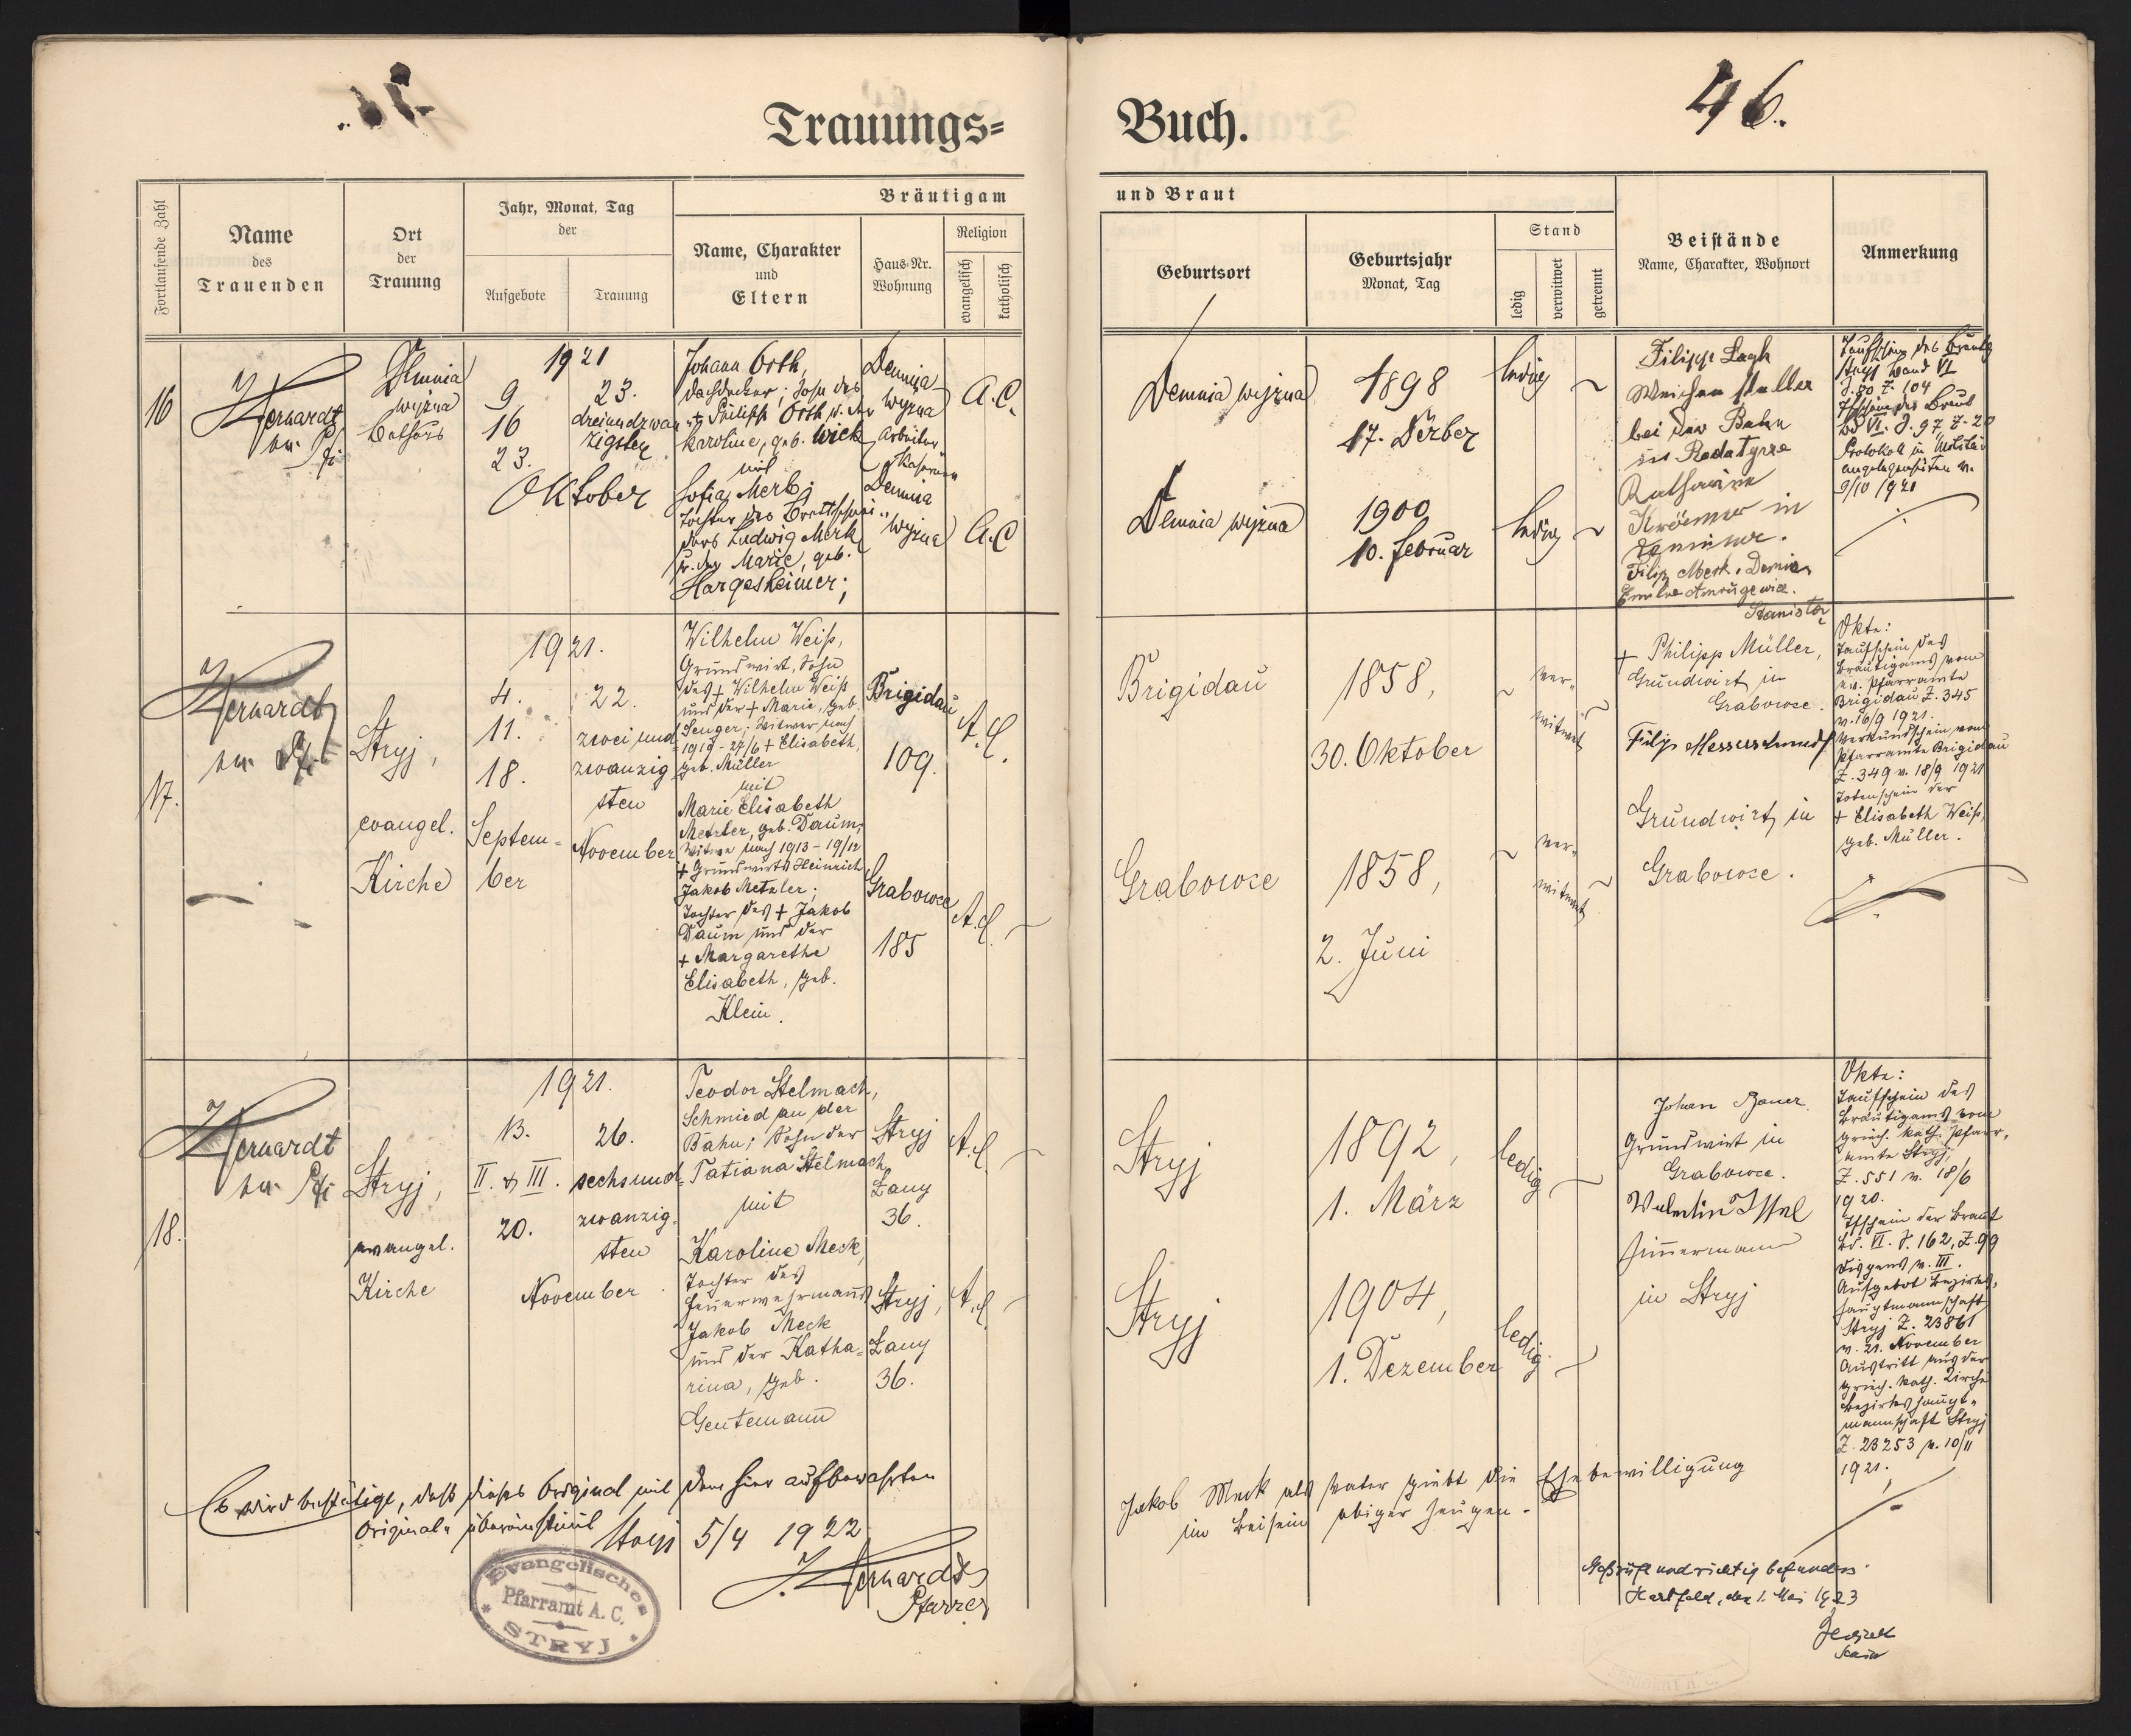 46.
Trauungs= Buch.
Fortlaufende Zahl
Name
des
Trauenden
Ort
der
Trauung
Jahr, Monat, Tag
der
Aufgebote
Trauung
Bräutigam
Name, Charakter
und
Eltern
Haus-Nr.
Wohnung
Religion
evangelisch
katholisch
und Braut
Geburtsort
Geburtsjahr
Monat, Tag
Stand
ledig
verwitwet
getrennt
Beistände
Name, Charakter, Wohnort
Anmerkung
16
Demnia
wyżna
Bethaus
1921
9
16
23.
23.
dreiundzwan
zigsten
Oktober
Johann Orth,
Dachdecker; Sohn des
+ Philipp Orth u. der
Karoline, geb. Wick
mit
Sofia Merk,
Tochter des
Ludwig Merk
u. der Marie, geb.
Hargesheimer;
Demnia
wyżna
Demnia
wyżna
A.C.
A.C
Demnia wyżna
1898
17. Dezber
ledig
Demnia wyżna
1900
10. Februar
ledig
Filipp
Weichensteller
bei der Bahn
in
Katharina
in
Filip Merk. Demnia
Taufschein des Bräutig
Stryj Band VI
S. 80 Z. 104
der Braut
Bd VI. S. 97, Z. 20
Protokoll in Militär
angelegenheiten v.
9/10 1921
17.
Stryj,
evangel.
Kirche
1921.
4.
11.
18.
Septem=
ber
22.
zweiund=
zwanzig
sten
November
Wilhelm Weiß,
Grundwirt, Sohn
des + Wilhelm Weiß
und der + Marie, geb.
Senger; Witwer nach
1919 - 27/6 + Elisabeth,
geb. Müller
mit
Marie Elisabeth
Metzler, geb. Daum,
Witwe nach 1913 - 19/12
+ Grundwirts Heinrich
Jakob Metzler;
Tochter des + Jakob
Daum und der
+ Margarethe
Elisabeth, geb.
Klein.
Brigidau
109.
Grabowce
185
A.C.
A.C.
Brigidau
1858,
30. Oktober
ver=
witwet
Grabowce
1858,
2. Juni
ver=
witwet
+ Philipp Müller,
Grundwirt in
Grabowce.
Filip Messerschmidt
Grundwirt in
Grabowce.
Akte:
Taufschein des
Bräutigams vom
ev. Pfarramte
Brigidau Z. 345
v. 16/9 1921.
Verkündschein vom
Pfarramte Brigidau
Z. 349 v. 18/9 1921
Totenschein der
+ Elisabeth Weiß,
geb. Müller.
18.
Stryj,
evangel.
Kirche
1921.
13.
II. & III.
20.
26.
sechsund=
zwanzig=
sten
November
Teodor Stelmach,
Schmied an der
Bahn; Sohn der
Tatiana Stelmach
mit
Karoline Meck,
Tochter des
Feuerwehrmanns
Jakob Meck
und der Katha=
rina, geb.
Gentemann
Stryj
Łany
36.
Stryj,
Łany
36.
A.C.
A.C.
Stryj
1892,
1. März
ledig
Stryj
1904,
1. Dezember
ledig.
Johan Bauer
Grundwirt in
Grabowce.
Walentin Issel
Zimmermann
in Stryj
Akte:
Taufschein des
Bräutigams vom
griech. kath. Pfarr=
amte Stryj,
Z. 551 v. 18/6
1920.
Tfschein der Braut
Bd. VI. S. 162, Z. 99
Dispens v. III.
Aufgebot Bezirks=
hauptmannschaft
Stryj Z. 23861
v. 21. November
Austritt aus der
griech. kath. Kirche
Bezirkshaupt=
mannschaft Stryj
Z. 23253 v. 10/11
1921.
Es wird bestätigt, daß dieses Original mit dem hier aufbewahrten
Original übereinstimmt
Stryj 5/4 1922
Pfarrer
Evangelisches
Pfarramt A. C.
STRYJ
Jakob Meck als Vater giebt die Ehebewilligung
im Beisein obiger Zeugen.
Geprüft und richtig befunden
Hartfeld, den 1. Mai 1923